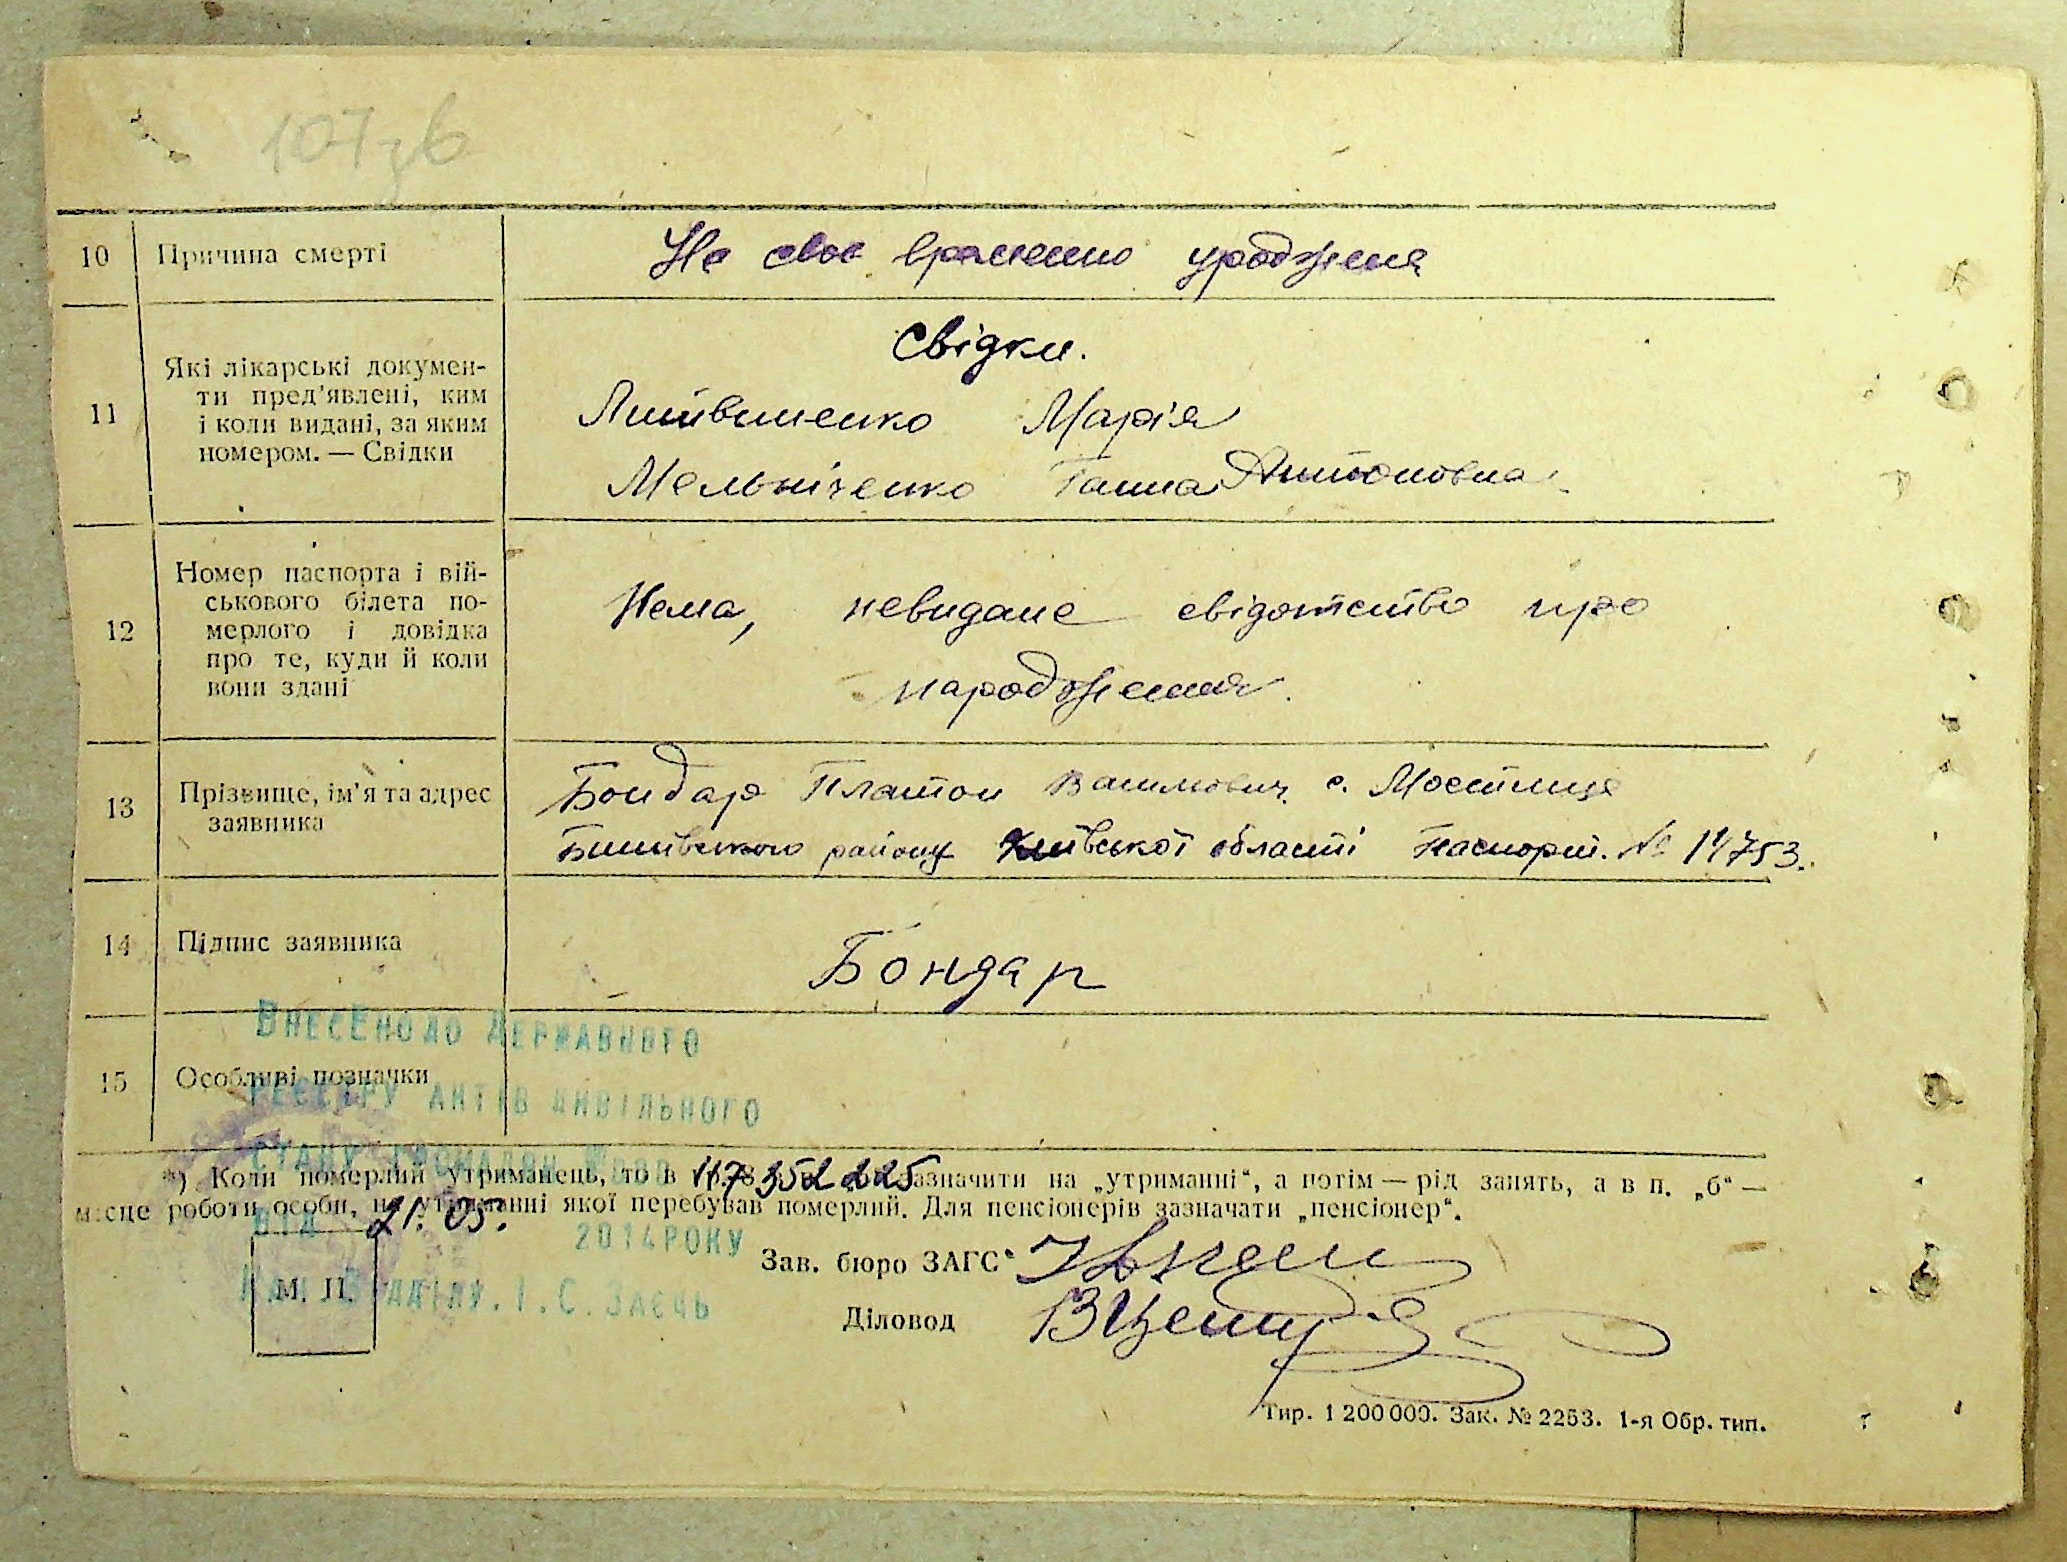 107зв
10 Причина смерті Не своє временно уродженя
Свідки.
11 Які лікарські докумен-
ти пред'явлені, ким
і коли видані, за яким
номером. — Свідки
Литвиненко Марія
Мельніченко Ганна Антоновна
12 Номер паспорта і вій-
ськового білета по-
мерлого і довідка
про те, куди й коли
вони здані
Нема, невидане свідотство про
народження.
13 Прізвище, ім'я та адрес
заявника
Бондар Платон с. Мостище
району Київської області Паспорт. № 14753.
14 Підпис заявника Бондар
15 Особливі позначки
Внесено до Державного
реєстру актів цивільного
стану громадян
*) Коли померлий утриманець, то в п. 8 зазначити на „утриманні“, а потім — рід занять, а в п. „б“ —
місце роботи особи, на утриманні якої перебував померлий. Для пенсіонерів зазначати „пенсіонер“.
117352225
від 21. 05. 2014 року
Нач. Відділу. І. С. Заєць
М. П.
Зав. бюро ЗАГС
Діловод
Тир. 1 200 000. Зак. № 2253. 1-я Обр. тип.